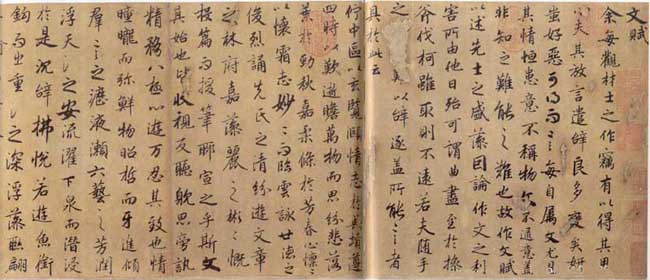 文賦
余每觀材士之作竊有以得其用
心夫其放言遣辭良多變矣妍
蚩好惡可得而言每自屬文尤見
其情恒患意不稱物文不逮意蓋
非知之難能之難也故作文賦
以述先士之盛藻因論作文之利
害所由他日殆可謂曲盡至於操
斧伐柯雖取則不遠若夫隨手
之難以辭逐蓋所能言者
具於此云
佇中區以玄覽頤情志於典墳遵
四時以歎逝瞻萬物而思紛悲落
葉於勁秋嘉柔條於芳春心懍懍
以懷霜志妙妙而臨雲詠世德之
俊烈誦先民之清芬遊文章
之林府嘉藻麗之彬彬慨
投篇而援筆聊宣之乎斯文
其始也皆收視反聽耽思旁訊
精務八極心遊萬刃其致也情
曈曨而彌鮮物昭晢而互進傾
群言之瀝液漱六藝之芳潤
浮天淵之安流濯下泉而潛浸
於是沈辭怫悅若遊魚銜
鉤而出重淵之深浮藻聯翩